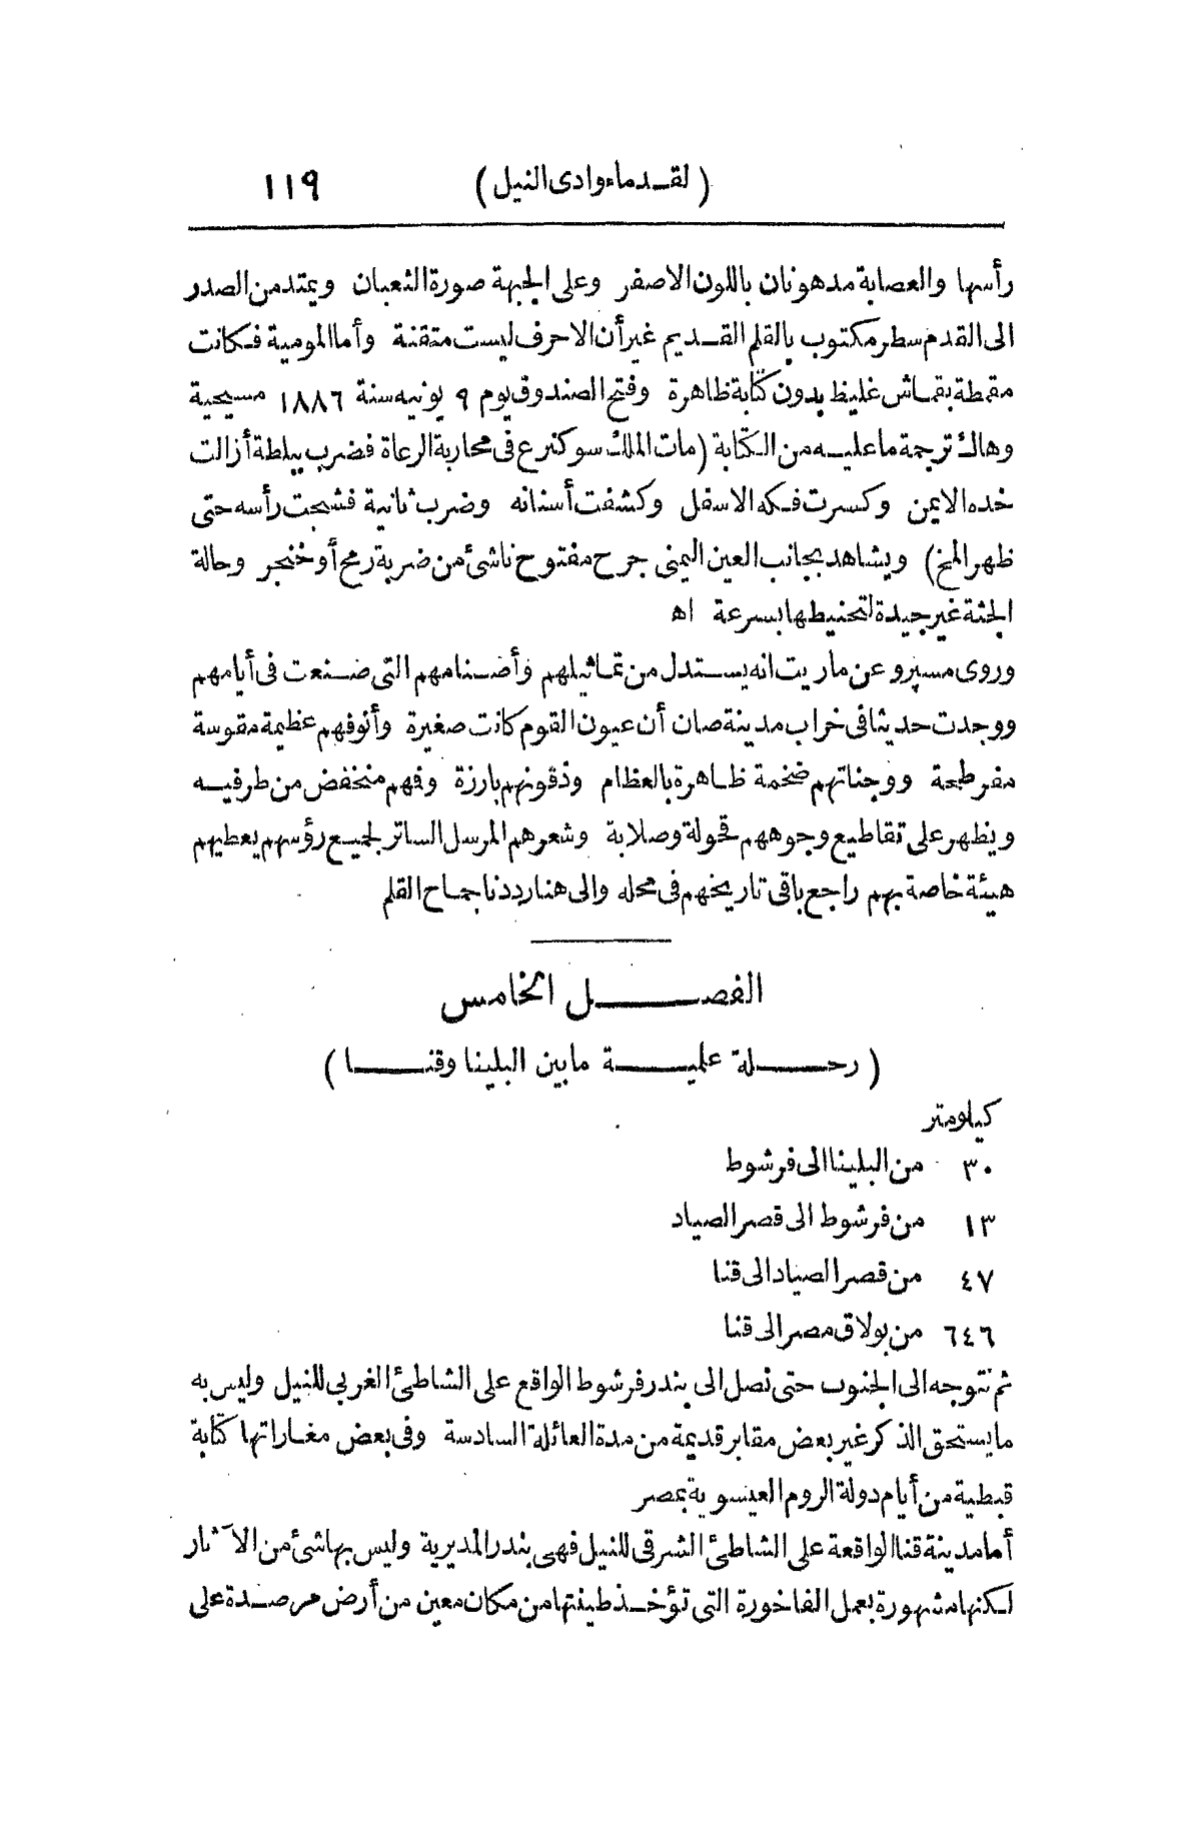 (لقدماء وادى النيل) ١١٩
رأسها والعصابة مدهونان باللون الاصفر وعلى الجبهة صورة الثعبان ويمتد من الصدر
الى القدم سطر مكتوب بالقلم القديم غير أن الاحرف ليست متقنة وأما المومية فكانت
مقمطة بقماش غليظ بدون كتابة ظاهرة وفتح الصندوق يوم ٩ يونيه سنة ١٨٨٦ مسيحية
وهاك ترجمة ما عليه من الكتابة (مات الملك سوكنرع فى محاربة الرعاة فضرب ببلطة أزالت
خده الايمن وكسرت فكه الاسفل وكشفت أسنانه وضرب ثانية فشجت رأسه حتى
ظهر المخ) ويشاهد بجانب العين اليمنى جرح مفتوح ناشئ من ضربة رمح أو خنجر وحالة
الجثة غير جيدة لتحنيطها بسرعة اه
وروى مسپرو عن ماريت انه يستدل من تماثيلهم وأصنامهم التى صنعت فى أيامهم
ووجدت حديثا فى خراب مدينة صان أن عيون القوم كانت صغيرة وأنوفهم عظيمة مقوسة
مفرطحة ووجناتهم ضخمة ظاهرة بالعظام وذقونهم بارزة وفهم منخفض من طرفيه
ويظهر على تقاطيع وجوههم قحولة وصلابة وشعرهم المرسل الساتر لجميع رؤسهم يعطيهم
هيئة خاصة بهم راجع باقى تاريخهم فى محله والى هنا رددنا جماح القلم
الفصل الخامس
(رحلة علمية ما بين البلينا وقنا)
كيلومتر
٣٠ من البلينا الى فرشوط
١٣ من فرشوط الى قصر الصياد
٤٧ من قصر الصياد الى قنا
٦٤٦ من بولاق مصر الى قنا
ثم نتوجه الى الجنوب حتى نصل الى بندر فرشوط الواقع على الشاطئ الغربى للنيل وليس به
ما يستحق الذكر غير بعض مقابر قديمة من مدة العائلة السادسة وفى بعض مغاراتها كتابة
قبطية من أيام دولة الروم العيسوية بمصر
أما مدينة قنا الواقعة على الشاطئ الشرقى للنيل فهى بندر المديرية وليس بها شئ من الآثار
لكنها مشهورة بعمل الفاخورة التى تؤخذ طينتها من مكان معين من أرض مرصدة على